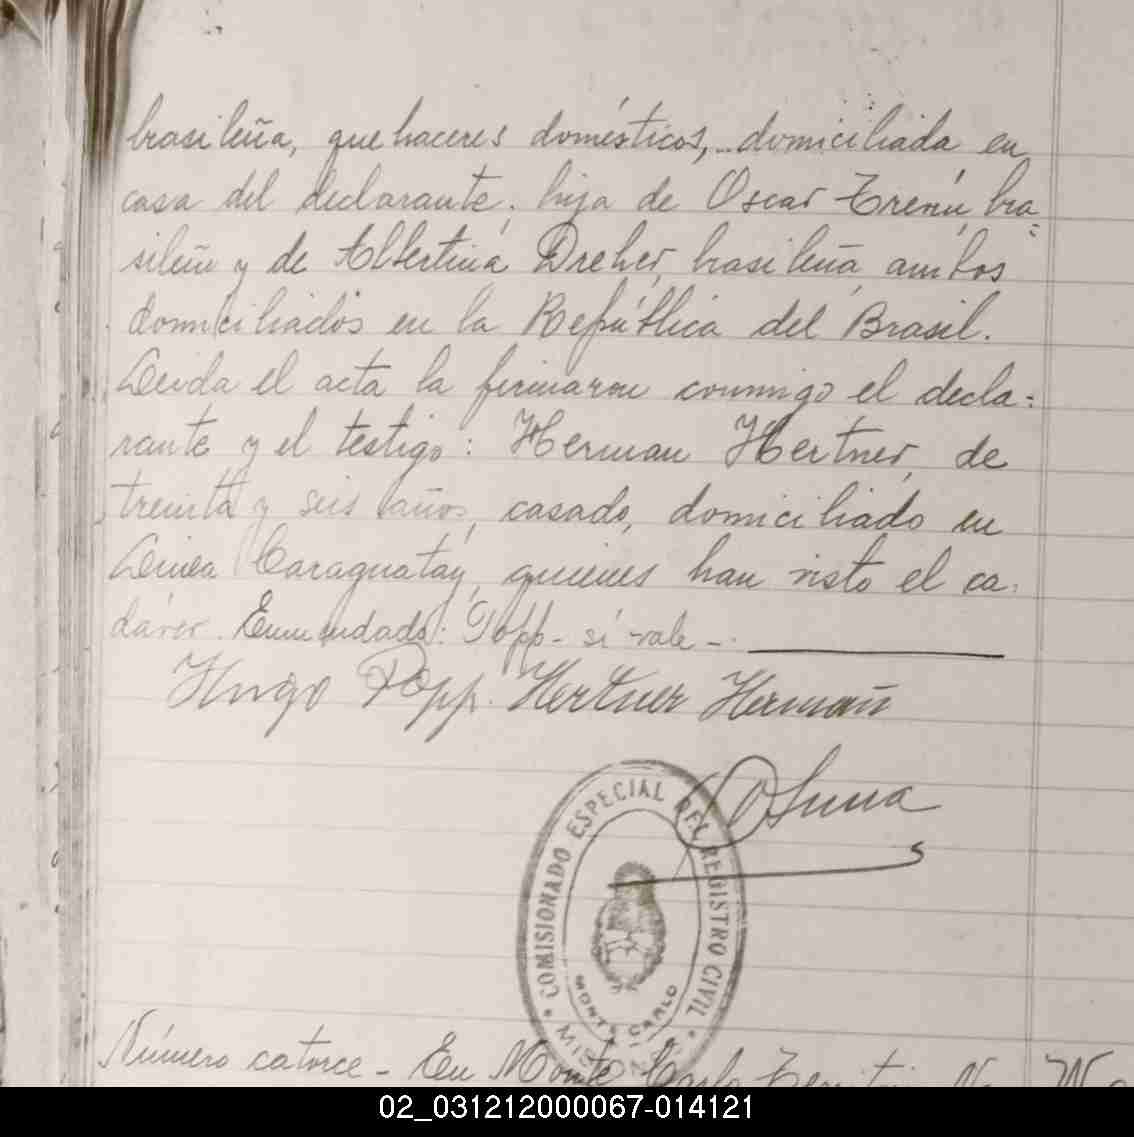 brasileña, quehaceres domésticos, domiciliada en
casa del declarante; hija de Oscar Trenú, bra-
sileño y de Albertina Dreher, brasileña, ambos
domiciliados en la República del Brasil.
Leída el acta la firmaron conmigo el decla-
rante y el testigo: Herman Hertner, de
treinta y seis años, casado, domiciliado en
Linea Caraguatay, quienes han visto el ca-
dáver. Enmendado: Popp - sí vale -.
Hugo Popp. Hertner Hermañ
COMISIONADO ESPECIAL DEL REGISTRO CIVIL
MONTE CARLO
Número catorce - En Monte Carlo
02_031212000067-014121